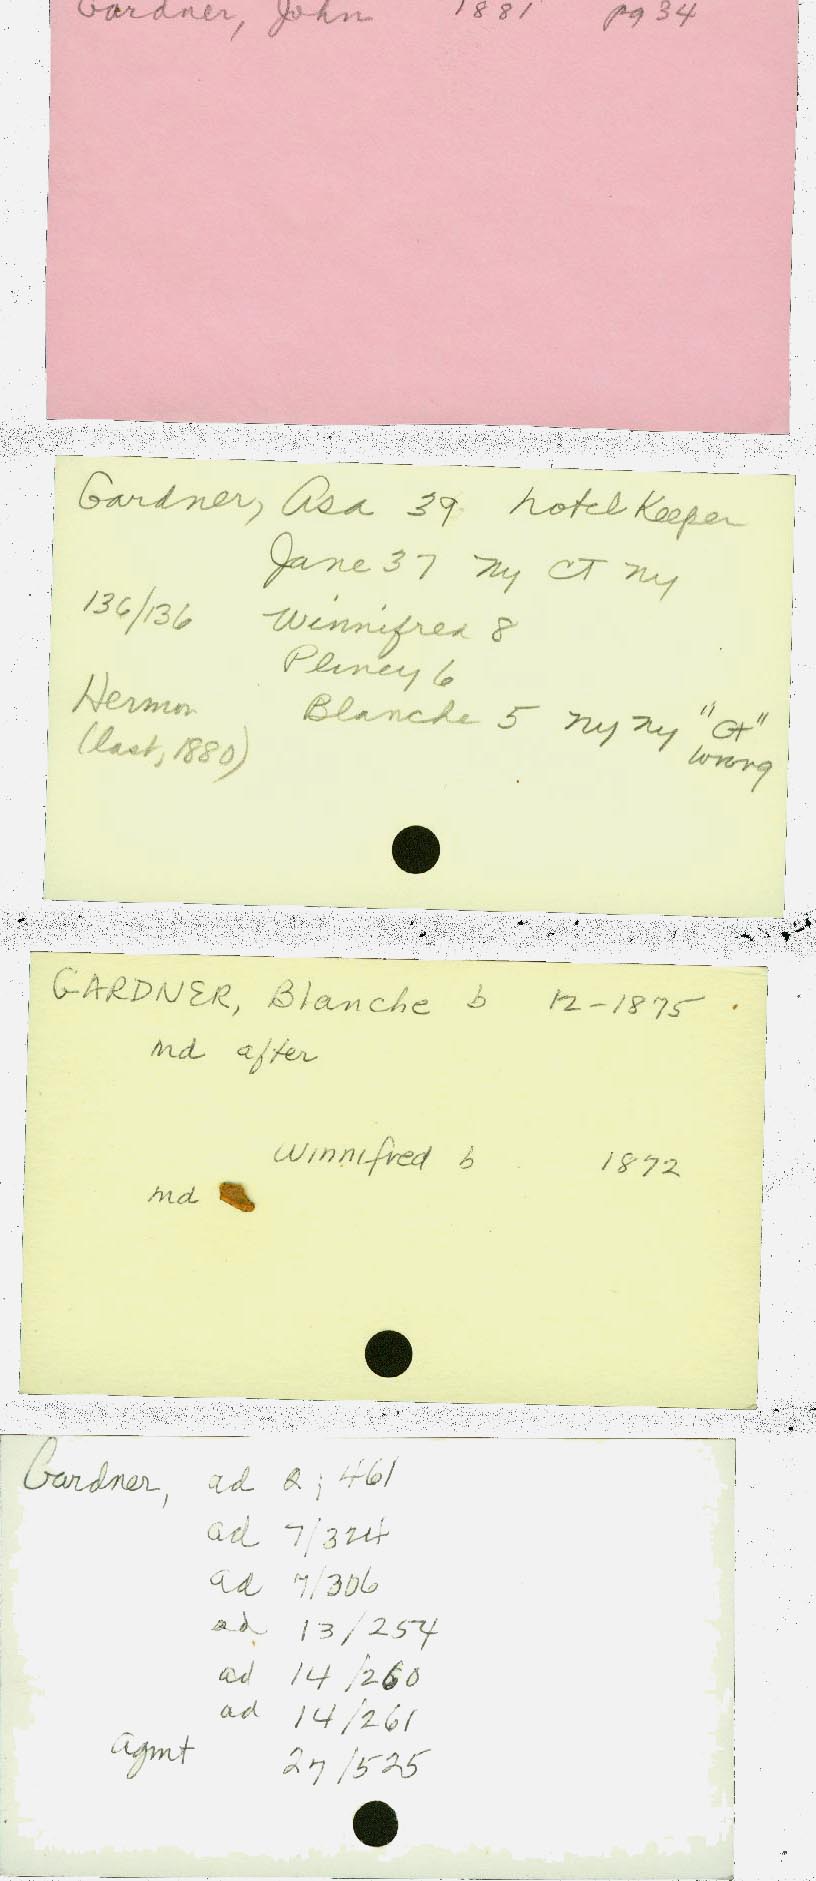 Gardner, John 1881 pg 34
Gardner, Asa 39 hotel Keeper
Jane 37 ny CT ny
136/136 Winnifred 8
Pliney 6
Hermon Blanche 5 ny ny "Ct"
(last, 1880) wrong
GARDNER, Blanche b 12-1875
md after
Winnifred b 1872
md
Gardner, ad 2; 461
ad 7/324
ad 7/306
ad 13/254
ad 14/260
ad 14/261
agmt 27/525